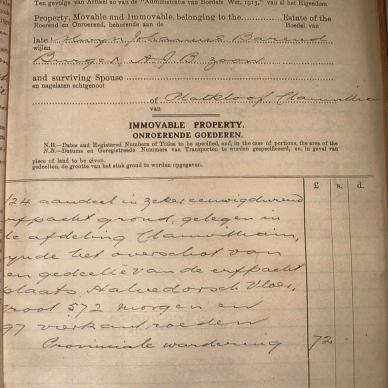 Ten gevolge van Artikel 10 van de "Administratie van Boedels Wet, 1913," van al het Eigendom
Property, Movable and Immovable, belonging to the Estate of the
Roerend en Onroerend, behoorende aan de Boedel van
late Johannes Barend
wijlen
Burger A J B zoon
and surviving Spouse
en nagelaten echtgenoot
of Platkloof Clanwilliam
van
IMMOVABLE PROPERTY.
ONROERENDE GOEDEREN.
N.B.—Dates and Registered Numbers of Titles to be specified, and, in the case of portions, the area of the
N.B.—Datums en Geregistreerde Nummers van Transporten te worden gespecificeerd, en, in geval van
piece of land to be given.
gedeelten, de grootte van het stuk grond te worden opgegeven.
£ s. d.
/24 aandeel in zeker eeuwigdurend
erfpacht grond, gelegen in
de afdeling Clanwilliam,
zynde het overschot van
een gedeelte van de erfpacht
plaats, Halvedorsch Vloer,
groot 572 morgen en
97 vierkant roeden
Provinciale waardering 72